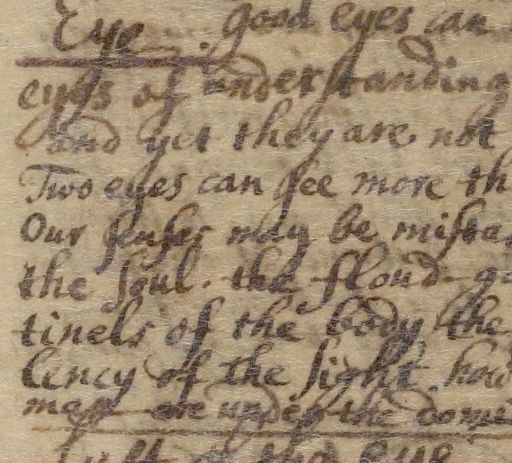 Eye. good eyes can
eyes of understanding
and yet they are not
Two eyes can see more th
Our senses may be mista
the soul. the floud g
tinels of the body the
lency of the sight. how
may are under the domi
of the eye